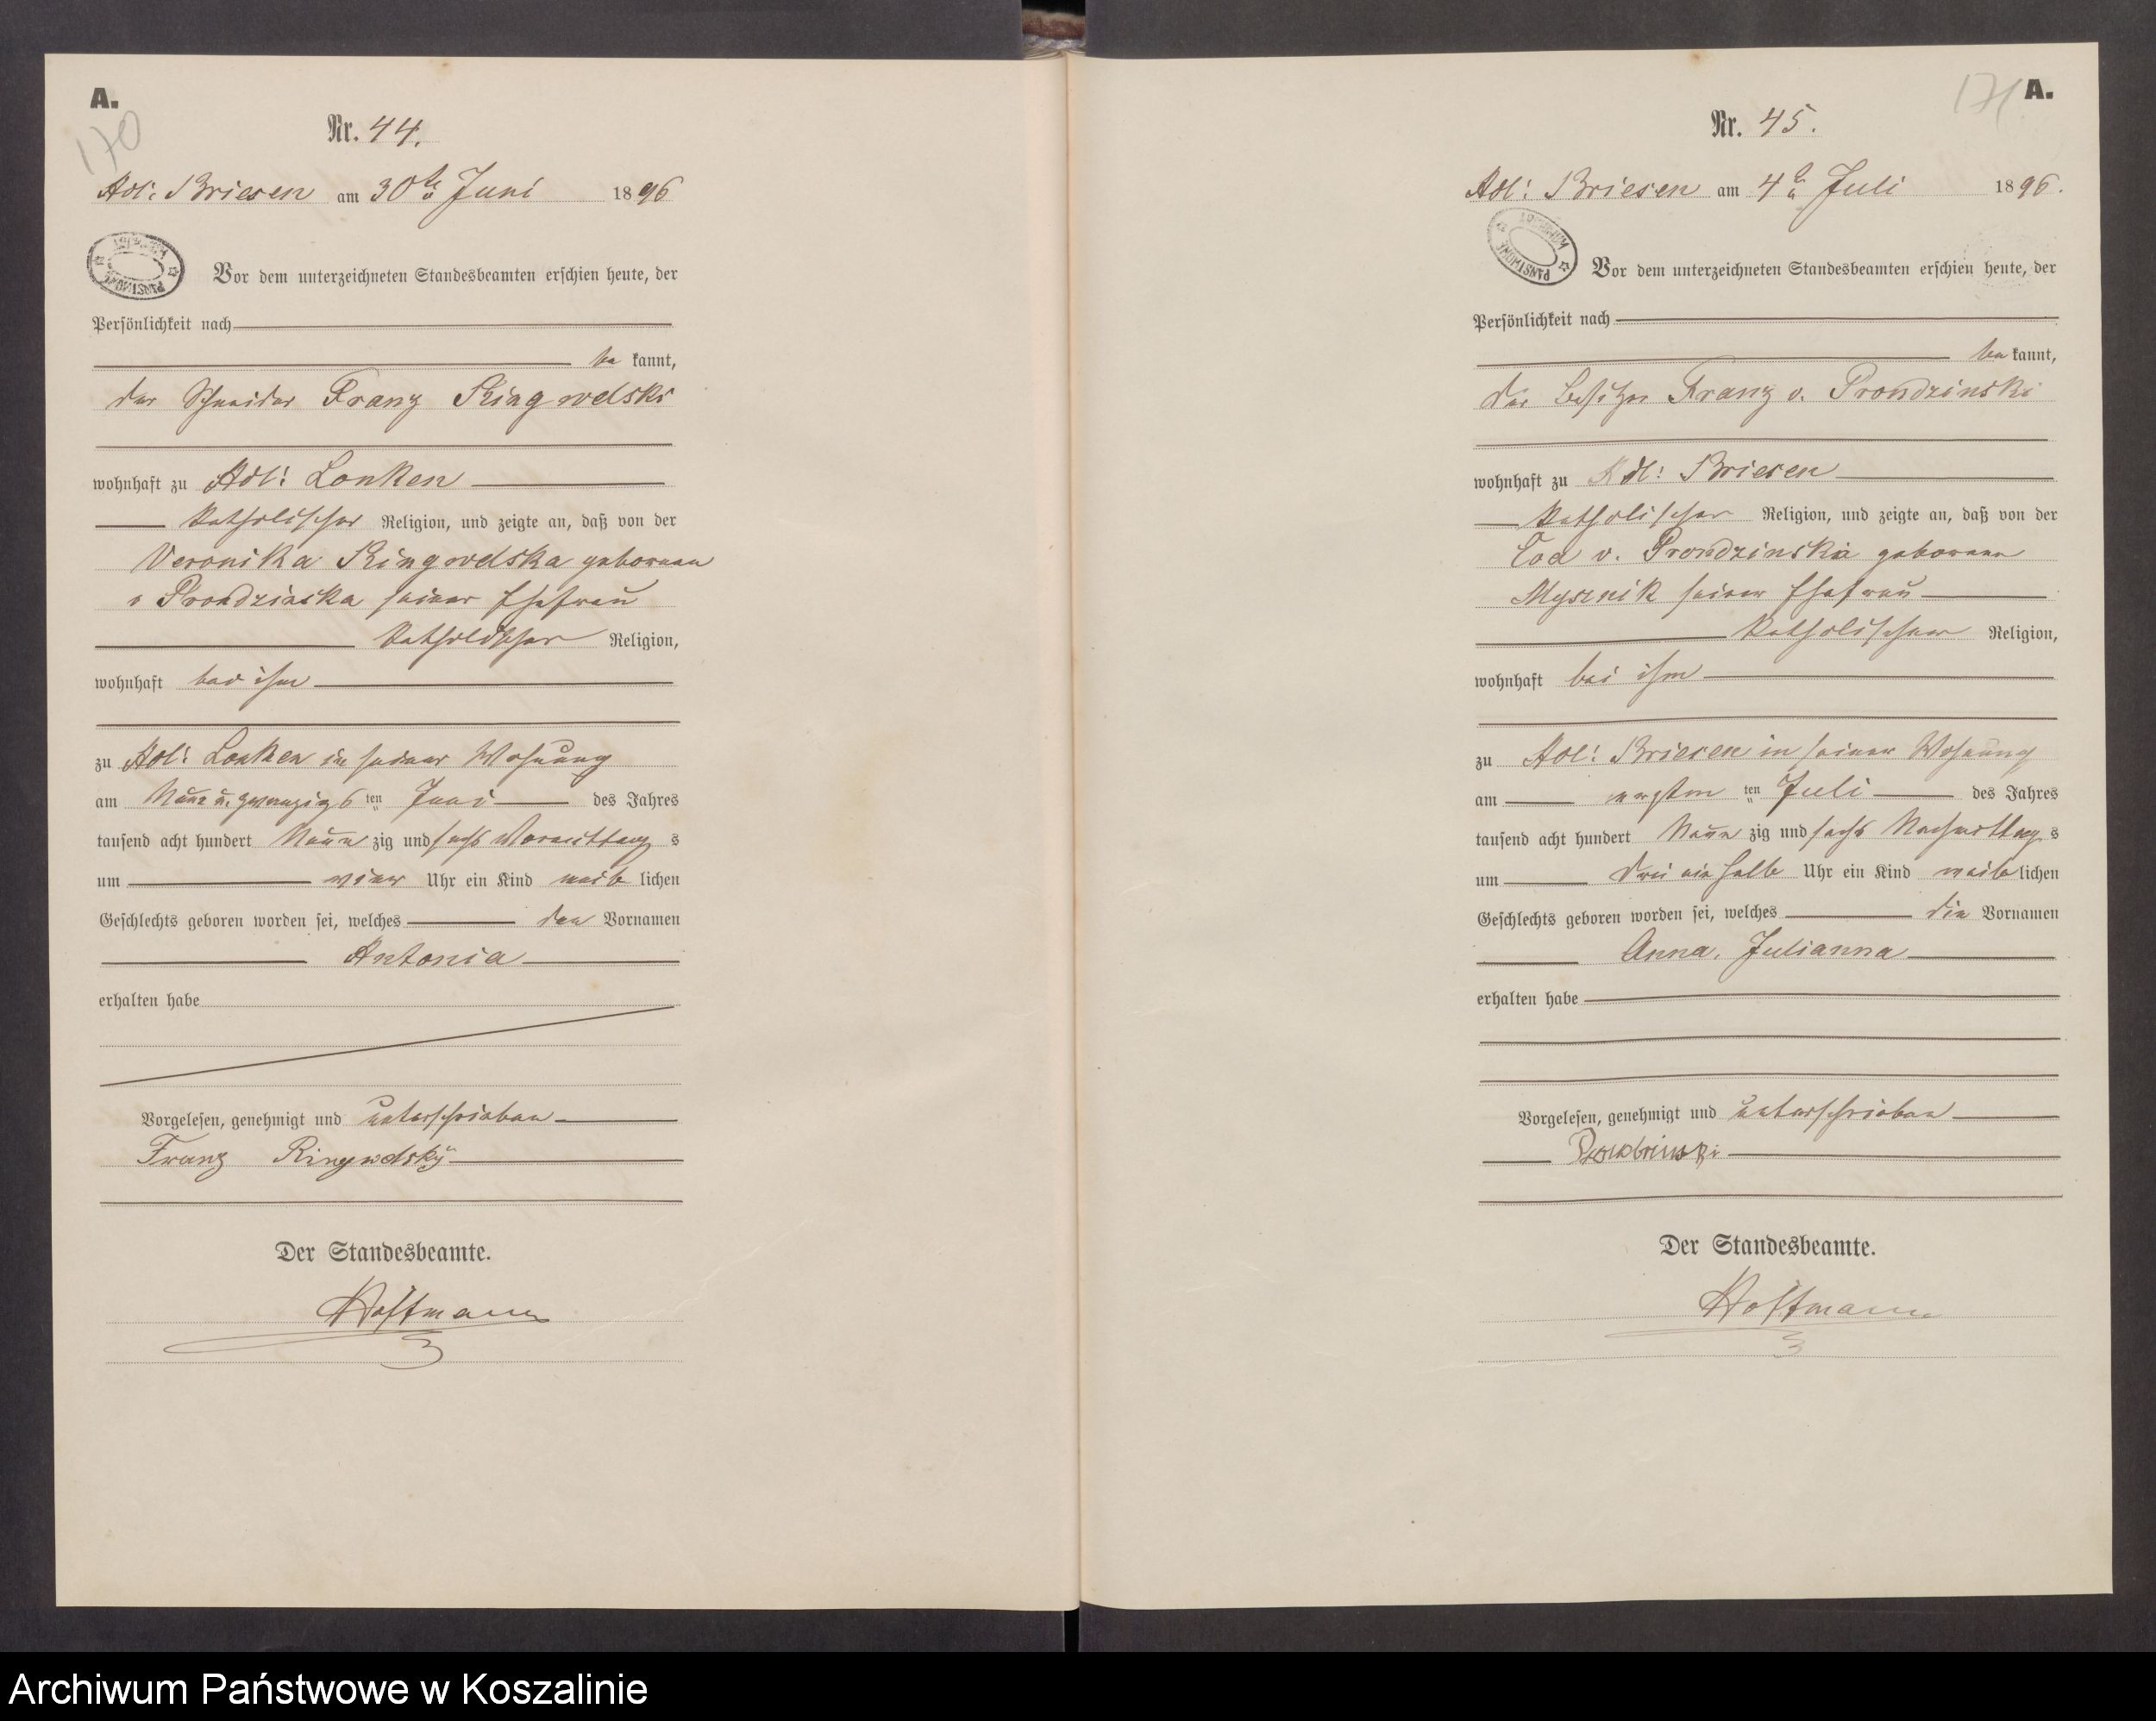 A.
170
Nr. 44.
Adl: Briesen am 30ten Juni 1896
Vor dem unterzeichneten Standesbeamten erschien heute, der
Persönlichkeit nach
be kannt,
der Schneider Franz Ringwelski
wohnhaft zu Adl: Lonken
katholischer Religion, und zeigte an, daß von der
Veronika Ringwelska geborenen
v Prondzinska seiner Ehefrau
katholischer Religion,
wohnhaft bei ihm
zu Adl: Lonken in seiner Wohnung
am Neun u. zwanzigs ten Juni des Jahres
tausend acht hundert Neun zig und sechs Vormittag s
um vier Uhr ein Kind weib lichen
Geschlechts geboren worden sei, welches den Vornamen
Antonia
erhalten habe
Vorgelesen, genehmigt und unterschrieben
Franz Ringwelsky
Der Standesbeamte.
Hoffmann
A.
171
Nr. 45.
Adl: Briesen am 4ten Juli 1896.
PAŃSTWOWE
Vor dem unterzeichneten Standesbeamten erschien heute, der
Persönlichkeit nach
be kannt,
der Besitzer Franz v. Prondzinski
wohnhaft zu Adl: Briesen
katholischer Religion, und zeigte an, daß von der
v. Prondzinska geborenen
Mysznik seiner Ehefrau
katholischer Religion,
wohnhaft bei ihm
zu Adl: Briesen in seiner Wohnung
am ersten ten Juli des Jahres
tausend acht hundert Neun zig und sechs Nachmittag s
um drei ein halb Uhr ein Kind weib lichen
Geschlechts geboren worden sei, welches die Vornamen
Anna, Julianna
erhalten habe
Vorgelesen, genehmigt und unterschrieben
Der Standesbeamte.
Hoffmann
Archiwum Państwowe w Koszalinie